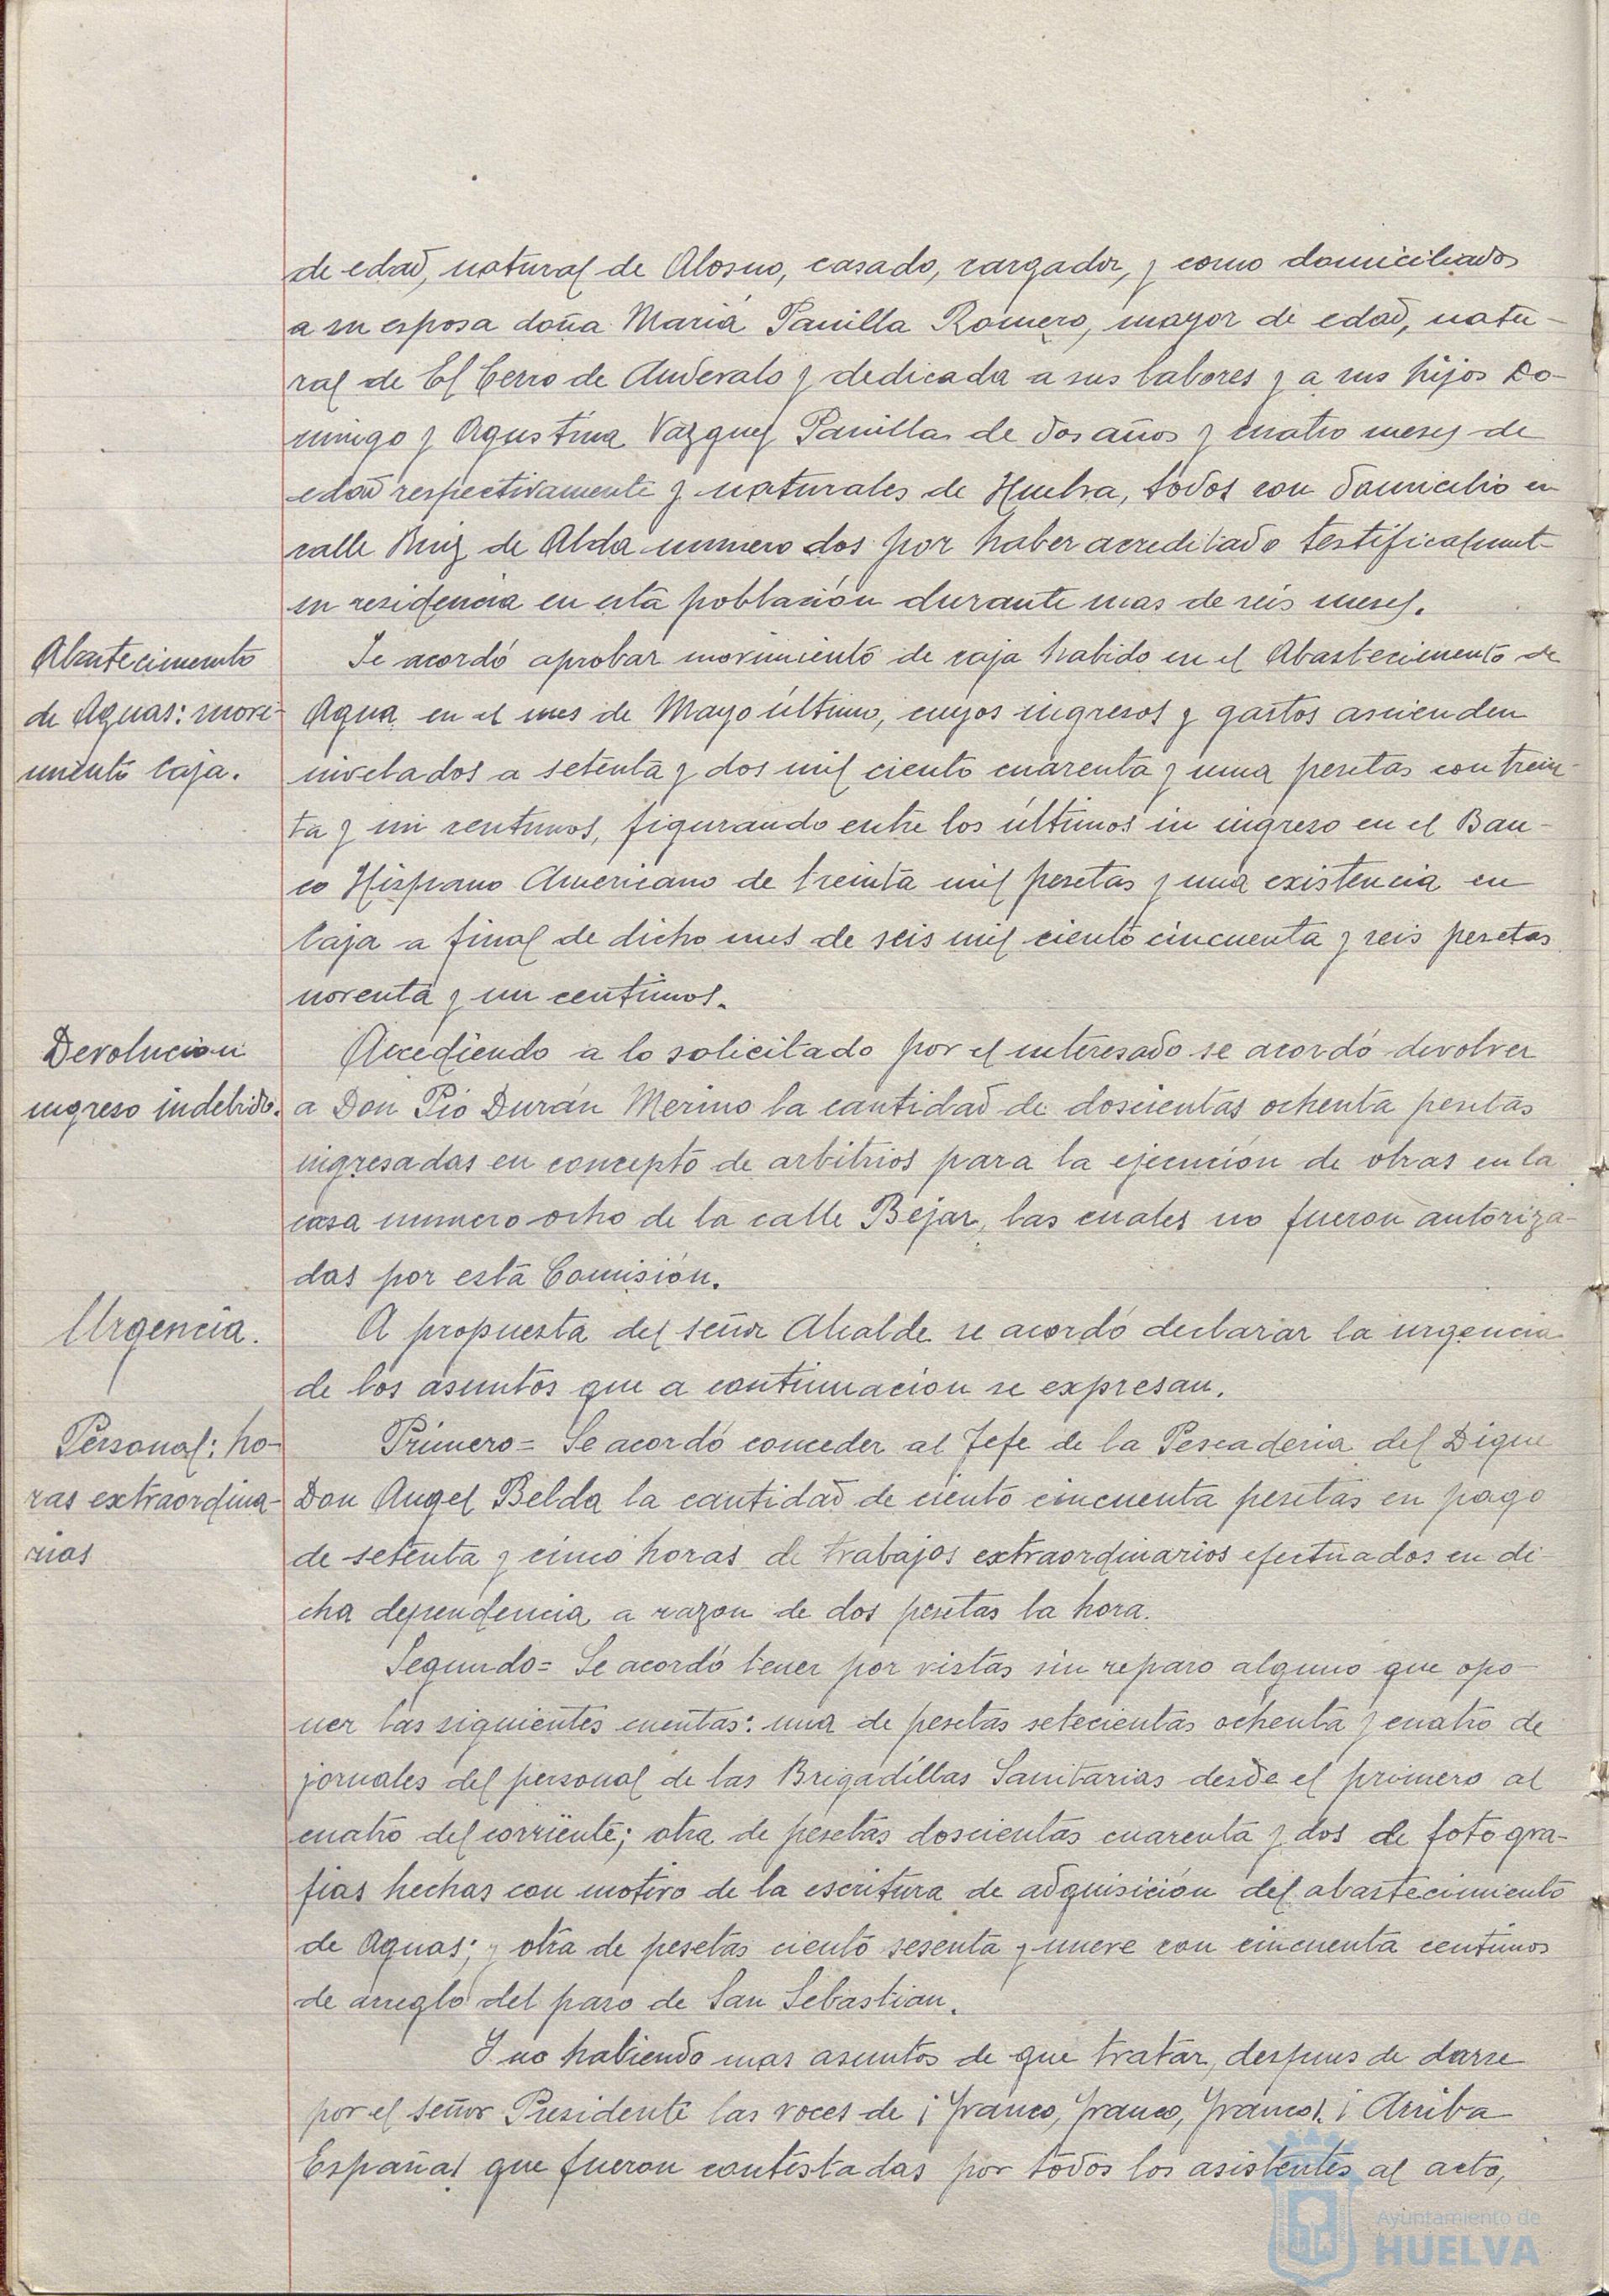 de edad, natural de Alosno, casado, cargador, y como domiciliados
a su esposa doña Maria Panilla Romero, mayor de edad, natu-
ral de El Cerro de Andevalo y dedicada a sus labores y a sus hijos Do-
mingo y Agustina Vazquez Panilla de dos años y cuatro meses de
edad respectivamente y naturales de Huelva, todos con domicilio en
calle Ruiz de Alda numero dos por haber acreditado testificalment-
su residencia en esta población durante mas de seis meses.
Abastecimiento
de Aguas: movi-
miento Caja.
Se acordó aprobar movimiento de caja habido en el Abastecimiento de
Agua en el mes de Mayo último, cuyos ingresos y gastos ascienden
nivelados a setenta y dos mil ciento cuarenta y una pesetas con trein-
ta y un centimos, figurando entre los últimos un ingreso en el Ban-
co Hispano Americano de treinta mil pesetas y una existencia en
Caja a final de dicho mes de seis mil ciento cincuenta y seis pesetas
noventa y un centimos.
Devolucion
ingreso indebido.
Accediendo a lo solicitado por el interesado se acordó devolver
a Don Pio Durán Merino la cantidad de doscientas ochenta pesetas
ingresadas en concepto de arbitrios para la ejecución de obras en la
casa numero ocho de la calle Bejar, las cuales no fueron autoriza-
das por esta Comisión.
Urgencia.
A propuesta del señor Alcalde se acordó declarar la urgencia
de los asuntos que a continuacion se expresan.
Personal: ho-
ras extraordina-
rias
Primero = Se acordó conceder al Jefe de la Pescaderia del Dique
Don Angel Belda la cantidad de ciento cincuenta pesetas en pago
de setenta y cinco horas de trabajos extraordinarios efectuados en di-
cha dependencia a razon de dos pesetas la hora.
Segundo = Se acordó tener por vistas sin reparo alguno que opo-
ner las siguientes cuentas: una de pesetas setecientas ochenta y cuatro de
jornales del personal de las Brigadillas Sanitarias desde el primero al
cuatro del corriente; otra de pesetas doscientas cuarenta y dos de fotogra-
fias hechas con motivo de la escritura de adquisición del abastecimiento
de Aguas; y otra de pesetas ciento sesenta y nueve con cincuenta centimos
de arreglo del paso de San Sebastian.
Y no habiendo mas asuntos de que tratar, despues de darse
por el señor Presidente las voces de ¡Franco, Franco, Franco!. ¡Arriba
España! que fueron contestadas por todos los asistentes al acto,
Ayuntamiento de
HUELVA